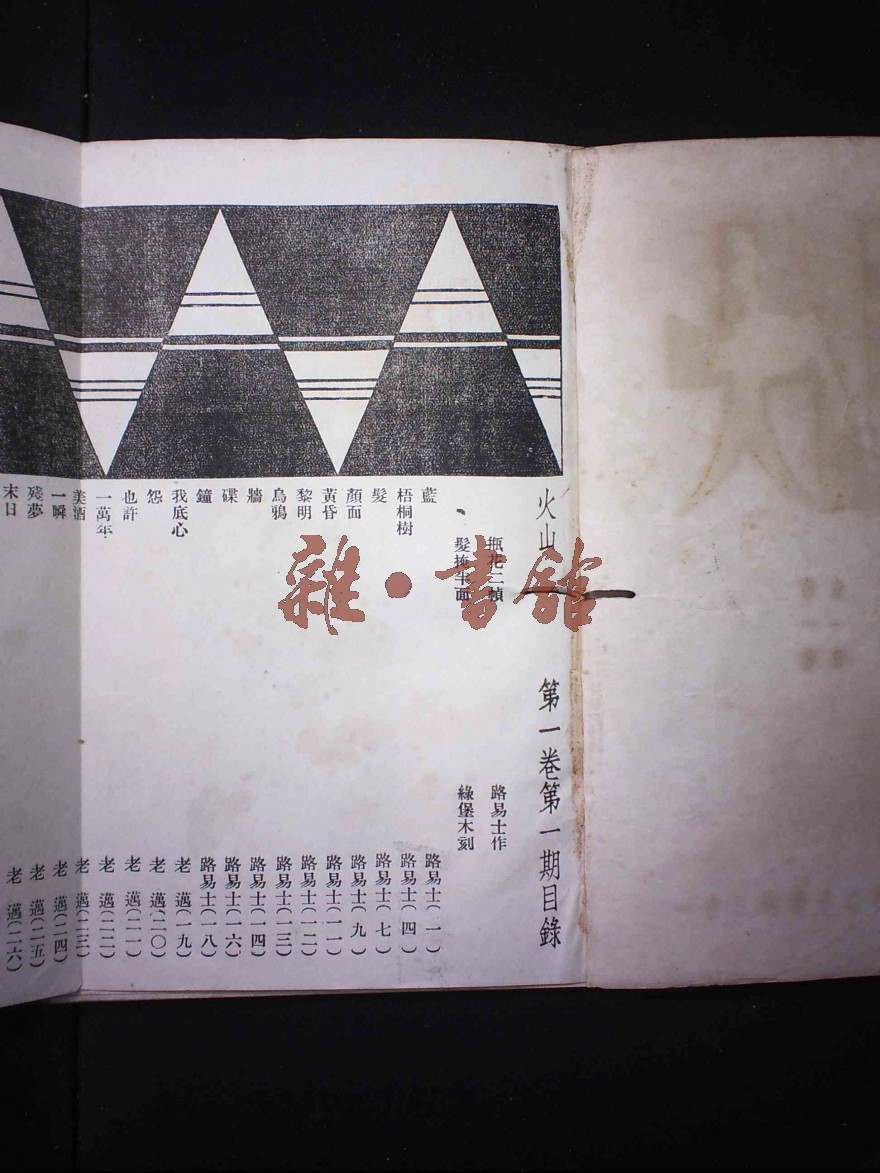 火山 第一卷第一期目錄
瓶花二幀 路易士作
髮掩半面 綠堡木刻
藍 路易士(一)
梧桐樹 路易士(四)
髮 路易士(七)
顏面 路易士(九)
黃昏 路易士(一一)
黎明 路易士(一二)
烏鴉 路易士(一三)
牆 路易士(一四)
碟 路易士(一六)
鐘 路易士(一八)
我底心 老邁(一九)
怨 老邁(二〇)
也許 老邁(二一)
一萬年 老邁(二二)
美酒 老邁(二三)
一瞬 老邁(二四)
殘夢 老邁(二五)
末日 老邁(二六)
雜·書館